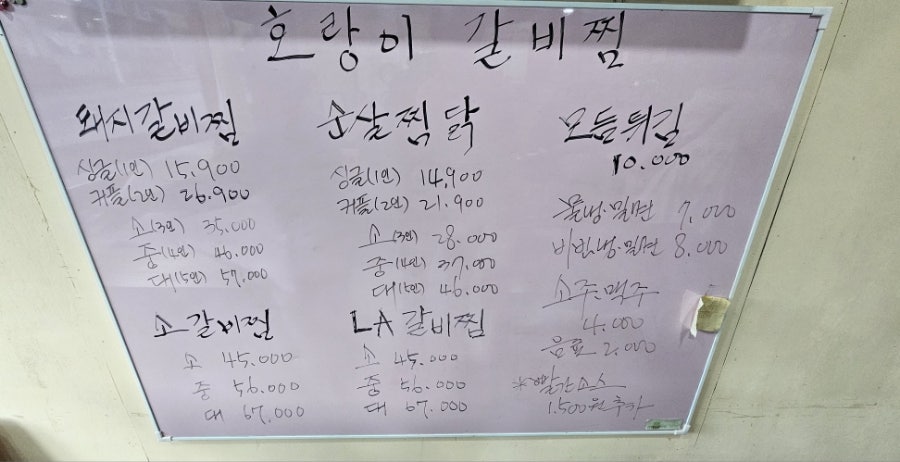 호랑이 갈비찜
돼지갈비찜
싱글(1인) 15,900
커플(2인) 26.900
소(3인) 35.000
중(4인) 46.000
대(5인) 57.000
소갈비찜
소 45.000
중 56.000
대 67.000
순살찜닭
싱글(1인) 14,900
커플(2인) 21.900
소(3인) 28.000
중(4인) 37.000
대(5인) 46.000
LA갈비찜
소 45.000
중 56.000
대 67.000
모듬튀김
10.000
물냉·밀면 7.000
비빔냉·밀면 8.000
소주·맥주
4.000
음료 2.000
*빨간소스
1.500원 추가